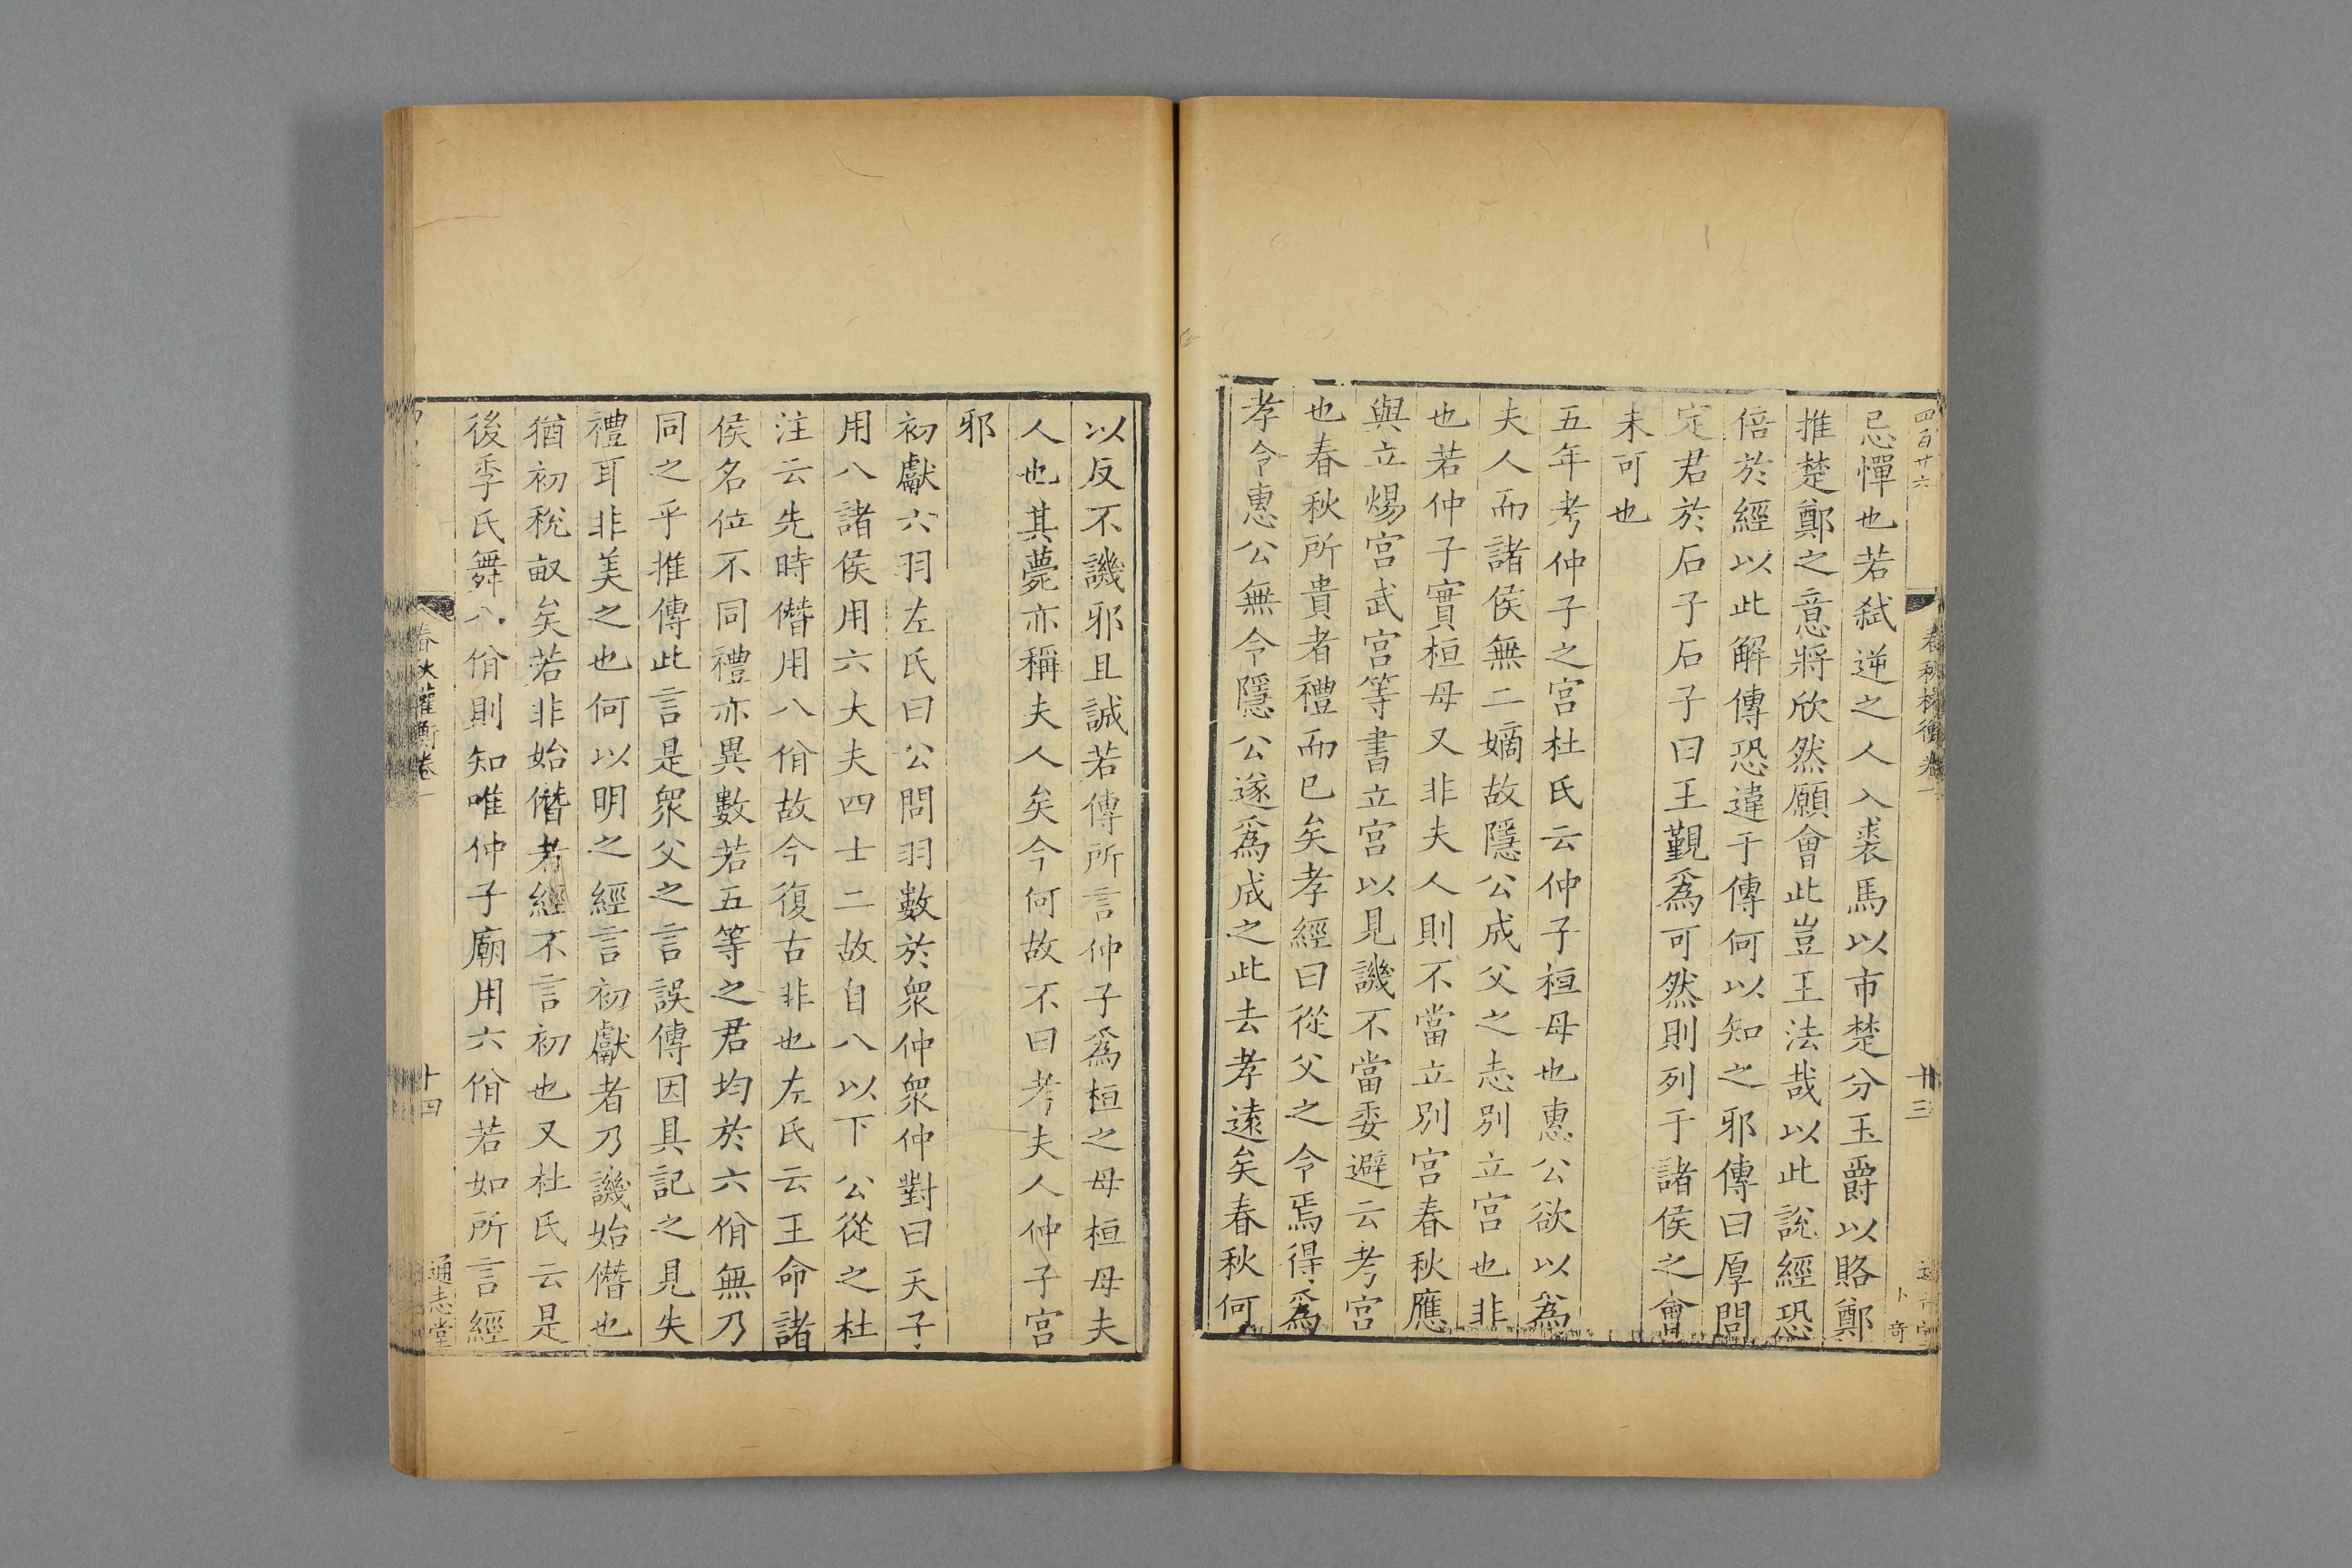 四百廿六
春秋權衡卷一
十三
卜奇
忌憚也若弒逆之人入裘馬以市楚分玉爵以賂鄭
推楚鄭之意將欣然願會此豈王法哉以此說經恐
倍於經以此解傳恐違于傳何以知之邪傳曰厚問
定君於石子石子曰王覲爲可然則列于諸侯之會
未可也
五年考仲子之宮杜氏云仲子桓母也惠公欲以爲
夫人而諸侯無二嫡故隱公成父之志別立宮也非
也若仲子實桓母又非夫人則不當立別宮春秋應
與立煬宮武宮等書立宮以見譏不當委避云考宮
也春秋所貴者禮而已矣孝經曰從父之令焉得爲
孝令惠公無令隱公遂爲成之此去孝遠矣春秋何
以反不譏邪且誠若傳所言仲子爲桓之母桓母夫
人也其薨亦稱夫人矣今何故不曰考夫人仲子宮
邪
初獻六羽左氏曰公問羽數於衆仲衆仲對曰天子
用八諸侯用六大夫四士二故自八以下公從之杜
注云先時僭用八佾故今復古非也左氏云王命諸
侯名位不同禮亦異數若五等之君均於六佾無乃
同之乎推傳此言是衆父之言誤傳因具記之見失
禮耳非美之也何以明之經言初獻者乃譏始僭也
猶初稅畝矣若非始僭者經不言初也又杜氏云是
後季氏舞八佾則知唯仲子廟用六佾若如所言經
春秋權衡卷一
十四
通志堂